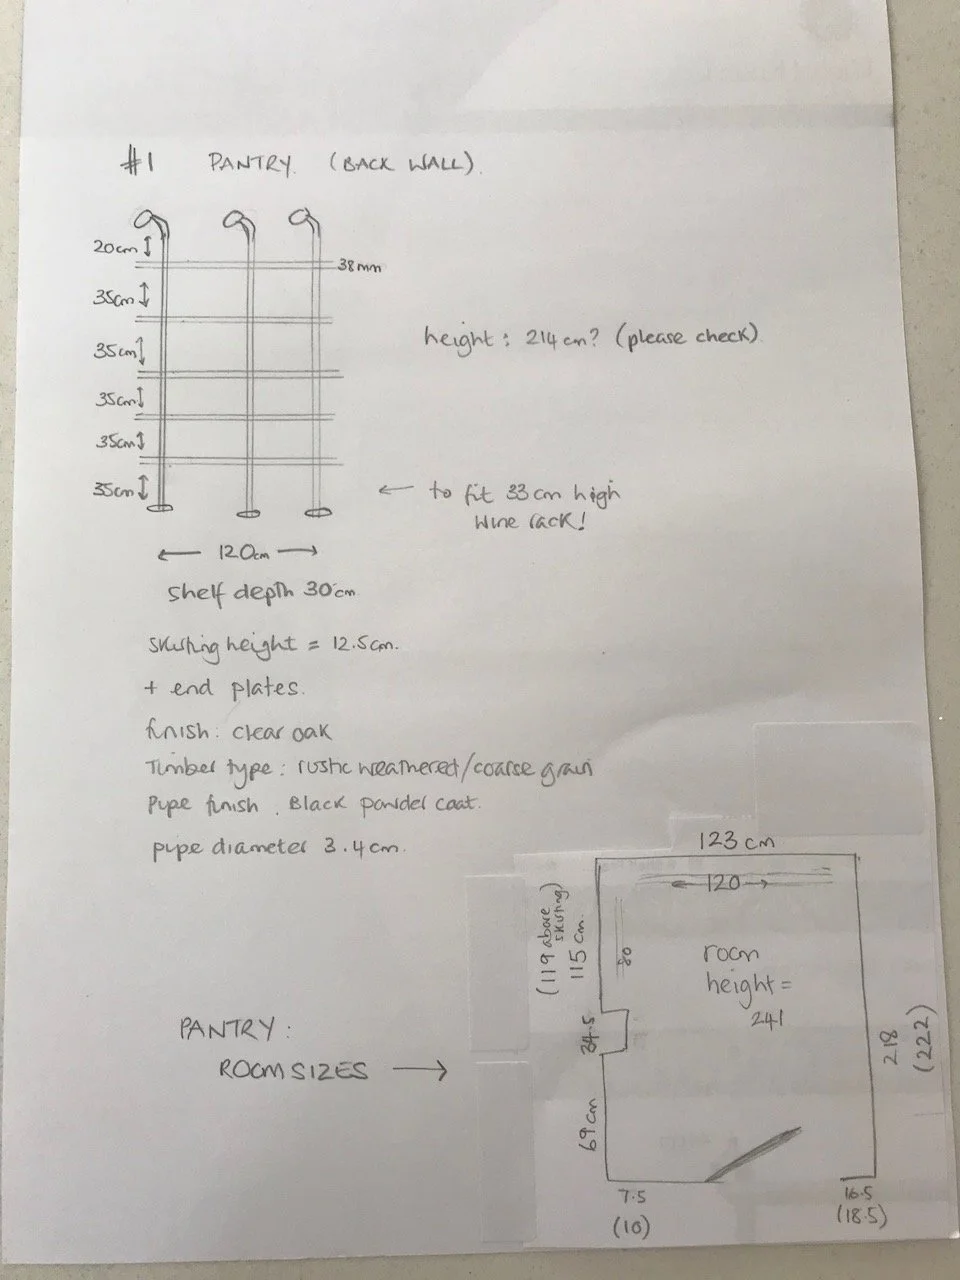 #1 PANTRY. (BACK WALL).
20cm
38mm
35cm
height: 214cm? (please check)
35cm
35cm
35cm
35cm
← to fit 33cm high
wine rack!
← 120cm →
shelf depth 30cm
skirting height = 12.5cm.
+ end plates.
finish: clear oak
Timber type: rustic weathered/coarse grain
Pipe finish. Black powder coat.
pipe diameter 3.4cm.
123 cm
← 120 →
(119 above skirting)
115 cm.
80
room
height =
241
34.5
218
(222)
PANTRY:
ROOM SIZES →
69cm
7.5
(10)
16.5
(18.5)